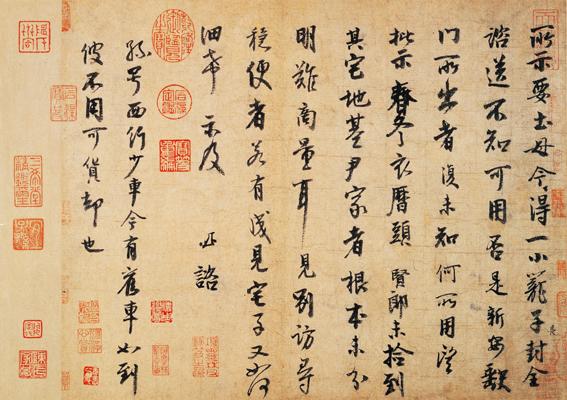 所示要土母今得一小籠子封全
諮送不知可用否是新安缺
門所出者復未知何所用望
批示春冬衣曆頭賢郎未檢到
其宅地基尹家者根本未分
明難商量耳見別訪尋
穩便者若有成見宅子又如何
細希示及諮
孫号西行少車今有舊車如到
彼不用可貨却也